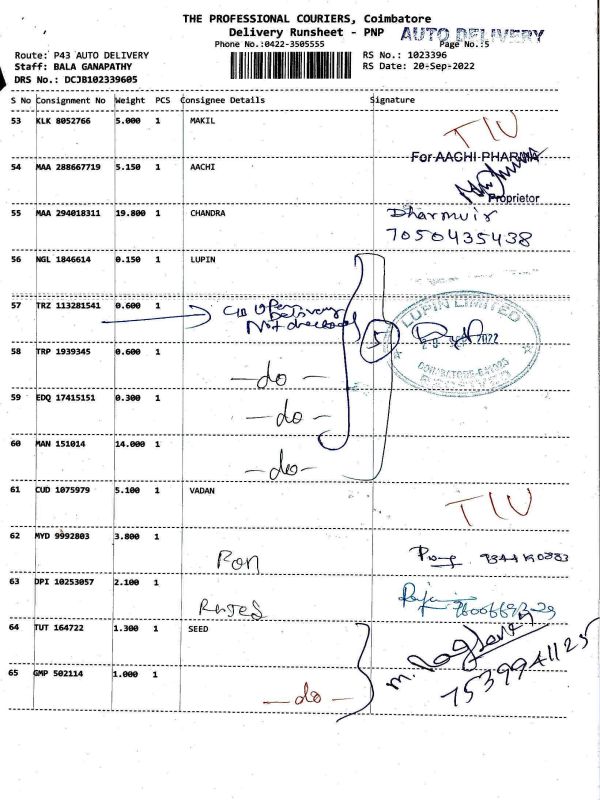 THE PROFESSIONAL COURIERS, Coimbatore
Delivery Runsheet - PNP AUTO DELIVERY
Phone No.:0422-3505555 Page No.:5
Route: P43 AUTO DELIVERY RS No.: 1023396
Staff: BALA GANAPATHY RS Date: 20-Sep-2022
DRS No.: DCJB102339605
S No Consignment No Weight PCS Consignee Details Signature
53 KLK 8052766 5.000 1 MAKIL
For AACHI PHARMA
54 MAA 288667719 5.150 1 AACHI
Proprietor
55 MAA 294018311 19.800 1 CHANDRA Dharmvir
7050435438
56 NGL 1846614 0.150 1 LUPIN
LUPIN LIMITED
57 TRZ 113281541 0.600 1
Not checked
5
2022
58 TRP 1939345 0.600 1
COIMBATORE-641025
RECEIVED
-do-
59 EDQ 17415151 0.300 1
-do-
60 MAN 151014 14.000 1
-do-
61 CUD 1075979 5.100 1 VADAN
62 MYD 9992803 3.800 1
Pon
63 DPI 10253057 2.100 1
64 TUT 164722 1.300 1 SEED
7539941125
65 GMP 502114 1.000 1
-do-